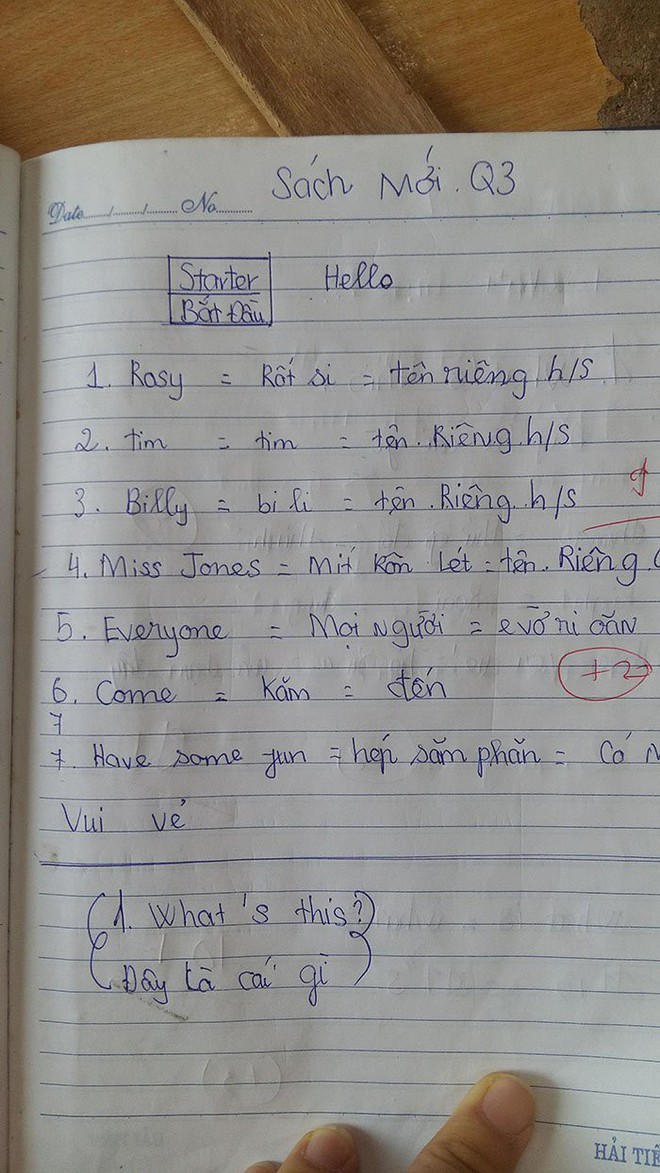 Sách Mới. Q3
Date..../..../.... No..........
Starter Hello
Bắt Đầu
1. Rosy = Rốt si = tên riêng h/s
2. tim = tim = tên. Riêng. h/s
3. Billy = bi li = tên. Riêng. h/s
4. Miss Jones = Mít Kôn Lét = tên. Riêng.
5. Everyone = Mọi người = evơri oăn
+2
6. Come = Kăm = đến
7
7. Have some fun = hep săm phăn = Có
Vui vẻ
(1. What's this?)
(Đây là cái gì)
HẢI TIẾ